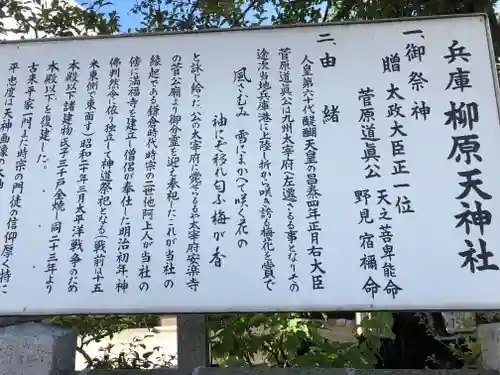 兵庫 柳原天神社
一、御祭神
贈 太政大臣正一位
菅原道眞公 天之菩卑能命
野見宿禰命
二、由緒
人皇第六十代醍醐天皇の昌泰四年正月右大臣
菅原道眞公は九州太宰府へ左遷さるる事となりその
途次当地兵庫港に上陸し折から咲き誇る梅花を賞で
風さむみ 雪にまがへて咲く花の
袖にぞ移れ匂ふ梅が香
と詠し給った 公の太宰府に薨ぜるるや太宰府安楽寺
の菅公廟より御分霊を迎え奉祀したこれが当社の
縁起である鎌倉時代時宗の二世他阿上人が当社の
傍に満福寺を建立し僧侶が奉仕した明治初年神
佛判然令に依り独立して神道祭祀となる(戦前は十五
米東側で東面す)昭和二十年三月太平洋戦争のため
本殿以下諸建物氏子三千戸全焼し同二十三年より
本殿以下を復建した
古来平家一門また時宗の門徒の信仰厚く特に
平忠度は天神画像の